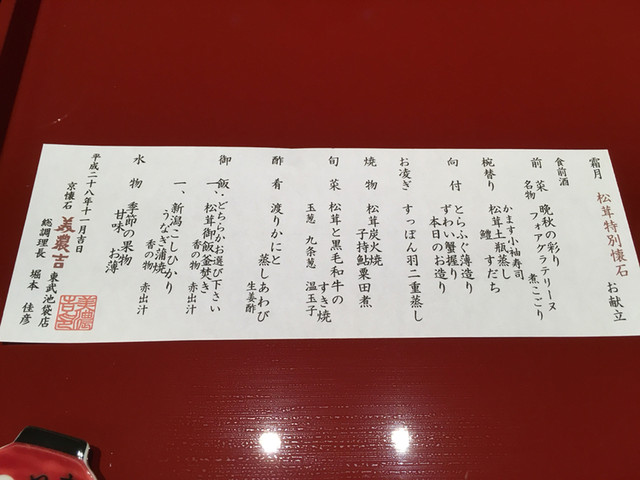 霜月　松茸特別懐石　お献立
食前酒
前菜　晩秋の彩り
名物　フォアグラテリーヌ　煮こごり
かます小袖寿司
椀替り　松茸土瓶蒸し
鱧　すだち
向付　とらふぐ薄造り
ずわい蟹握り
本日のお造り
お凌ぎ　すっぽん羽二重蒸し
焼物　松茸炭火焼
子持鮎粟田煮
旬菜　松茸と黒毛和牛の
すき焼
玉葱　九条葱　温玉子
酢肴　渡りかにと　蒸しあわび
生姜酢
御飯　どちらかお選び下さい
一、松茸御飯釜焚き
香の物　赤出汁
一、新潟こしひかり
うなぎ蒲焼
香の物　赤出汁
水物　季節の果物
甘味　お薄
平成二十八年十一月吉日
京懐石　美濃吉　東武池袋店
総調理長　堀本　佳彦